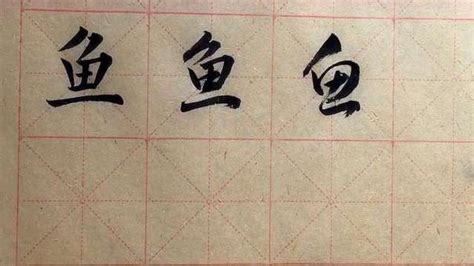 鱼 鱼 鱼